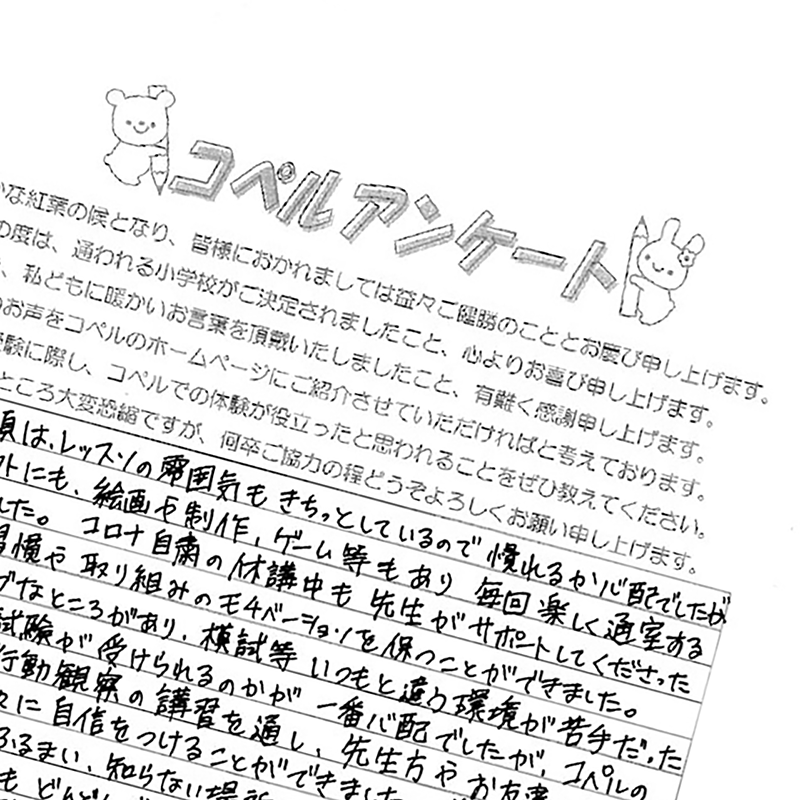 コペルアンケート
な紅葉の候となり、皆様におかれましては益々ご健勝のこととお慶び申し上げます。
の度は、通われる小学校がご決定されましたこと、心よりお喜び申し上げます。
、私どもに暖かいお言葉を頂戴いたしましたこと、有難く感謝申し上げます。
のお声をコペルのホームページにご紹介させていただければと考えております。
受験に際し、コペルでの体験が役立ったと思われることをぜひ教えてください。
ところ大変恐縮ですが、何卒ご協力の程どうぞよろしくお願い申し上げます。
頃は、レッスンの雰囲気もきちっとしているので慣れるか心配でしたが
トにも、絵画や制作、ゲーム等もあり毎回楽しく通室する
した。コロナ自粛の休講中も先生がサポートしてくださった
習慣や取り組みのモチベーションを保つことができました。
なところがあり、模試等いつもと違う環境が苦手だった
試験が受けられるのかが一番心配でしたが、コペルの
行動観察の講習を通し、先生方やお友達
々に自信をつけることができました
ふるまい、知らない場所
も どんどん